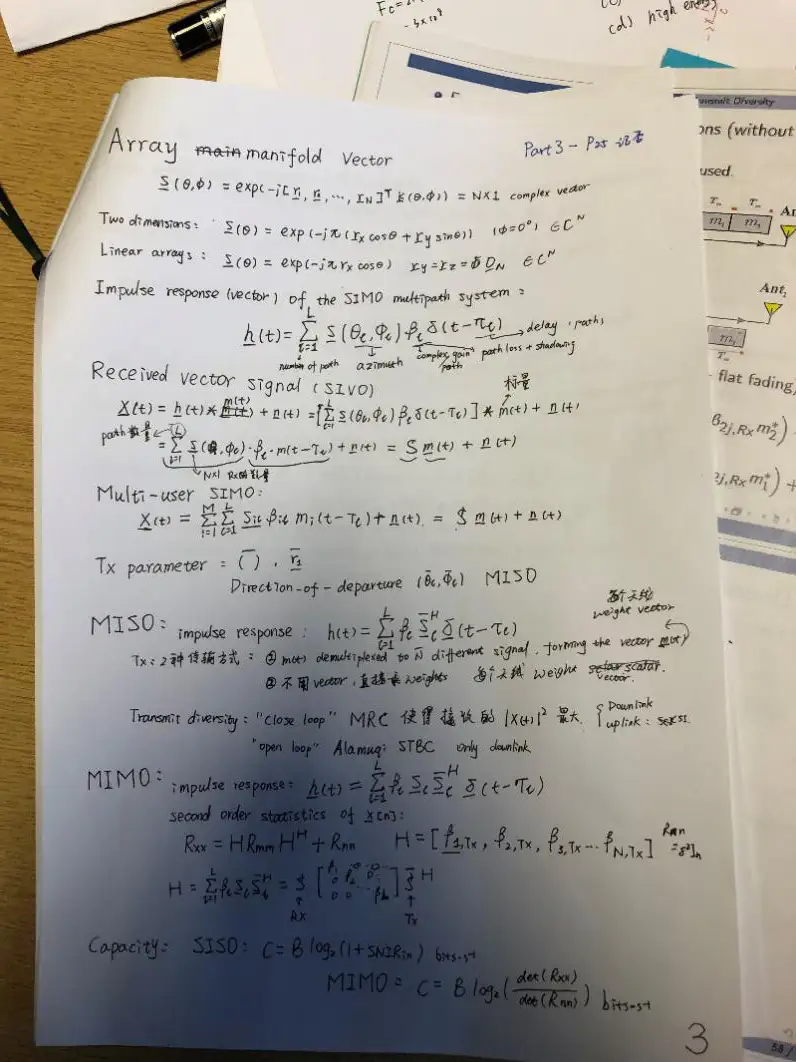 Fc=2
- 3×10⁸
(d) high energy
Transmit Diversity
ons (without
used.
Tₘ Tₘ
m₁ m₁
An
Ant₂
m₁*
flat fading,
β₂ⱼ,Rx m₂*)
2ⱼ,Rx m₁*) +
Part 3 - P25
Array main manifold Vector
S(θ,ϕ) = exp(-j[r₁, r₂, ..., r_N]ᵀ k(θ,ϕ)) = N×1 complex vector
Two dimensions: S(θ) = exp(-jπ(rx cosθ + ry sinθ)) (ϕ=0°) ∈ Cᴺ
Linear arrays: S(θ) = exp(-jπ rx cosθ) ry = rz = 0_N ∈ Cᴺ
Impulse response (vector) of the SIMO multipath system:
h(t) = Σ_{l=1}^{L} S(θₗ,ϕₗ) βₗ δ(t-τₗ) → delay, paths
number of path azimuth complex gain path path loss + shadowing
Received vector signal (SIVO) 标量
x(t) = h(t) * m(t) + n(t) = [Σ_{l=1}^{L} S(θₗ,ϕₗ) βₗ δ(t-τₗ)] * m(t) + n(t)
path数量
= Σ_{l=1}^{L} S(θₗ,ϕₗ)·βₗ·m(t-τₗ) + n(t) = S m(t) + n(t)
N×1 Rx的数量
Multi-user SIMO:
x(t) = Σ_{i=1}^{M} Σ_{l=1}^{L} S_{il} β_{il} mᵢ(t-τₗ) + n(t) = S m(t) + n(t)
Tx parameter = (¯), r̄₁
Direction-of-departure (θ̄ₗ,ϕ̄ₗ) MISO
每个天线
weight vector
MISO: impulse response: h(t) = Σ_{l=1}^{L} βₗ S̄ₗᴴ δ(t-τₗ)
Tx: 2种传输方式: ① m(t) demultiplexed to N̄ different signal, forming the vector m(t)
② 不用vector, 直接乘weights 每个天线 weight scalar vector.
Transmit diversity: "close loop" MRC 使得接收的 |x(t)|² 最大. { Downlink
uplink:
"open loop" Alamuti STBC only downlink
MIMO: impulse response: h(t) = Σ_{l=1}^{L} βₗ Sₗ S̄ₗᴴ δ(t-τₗ)
second order statistics of x[n]:
Rxx = H Rmm Hᴴ + Rnn H = [β₁,Tx, β₂,Tx, β₃,Tx ... β_N,Tx] Rnn = δ²I_n
H = Σ_{l=1}^{L} βₗ Sₗ S̄ₗᴴ = S [β₁ 0 ... 0 0 β₂ 0 0 0 ... β_L] S̄ᴴ
Rx Tx
Capacity: SISO: C = B log₂(1+SNIRin) bits·s-1
MIMO = C = B log₂(det(Rxx)/det(Rnn)) bits-s-1
3